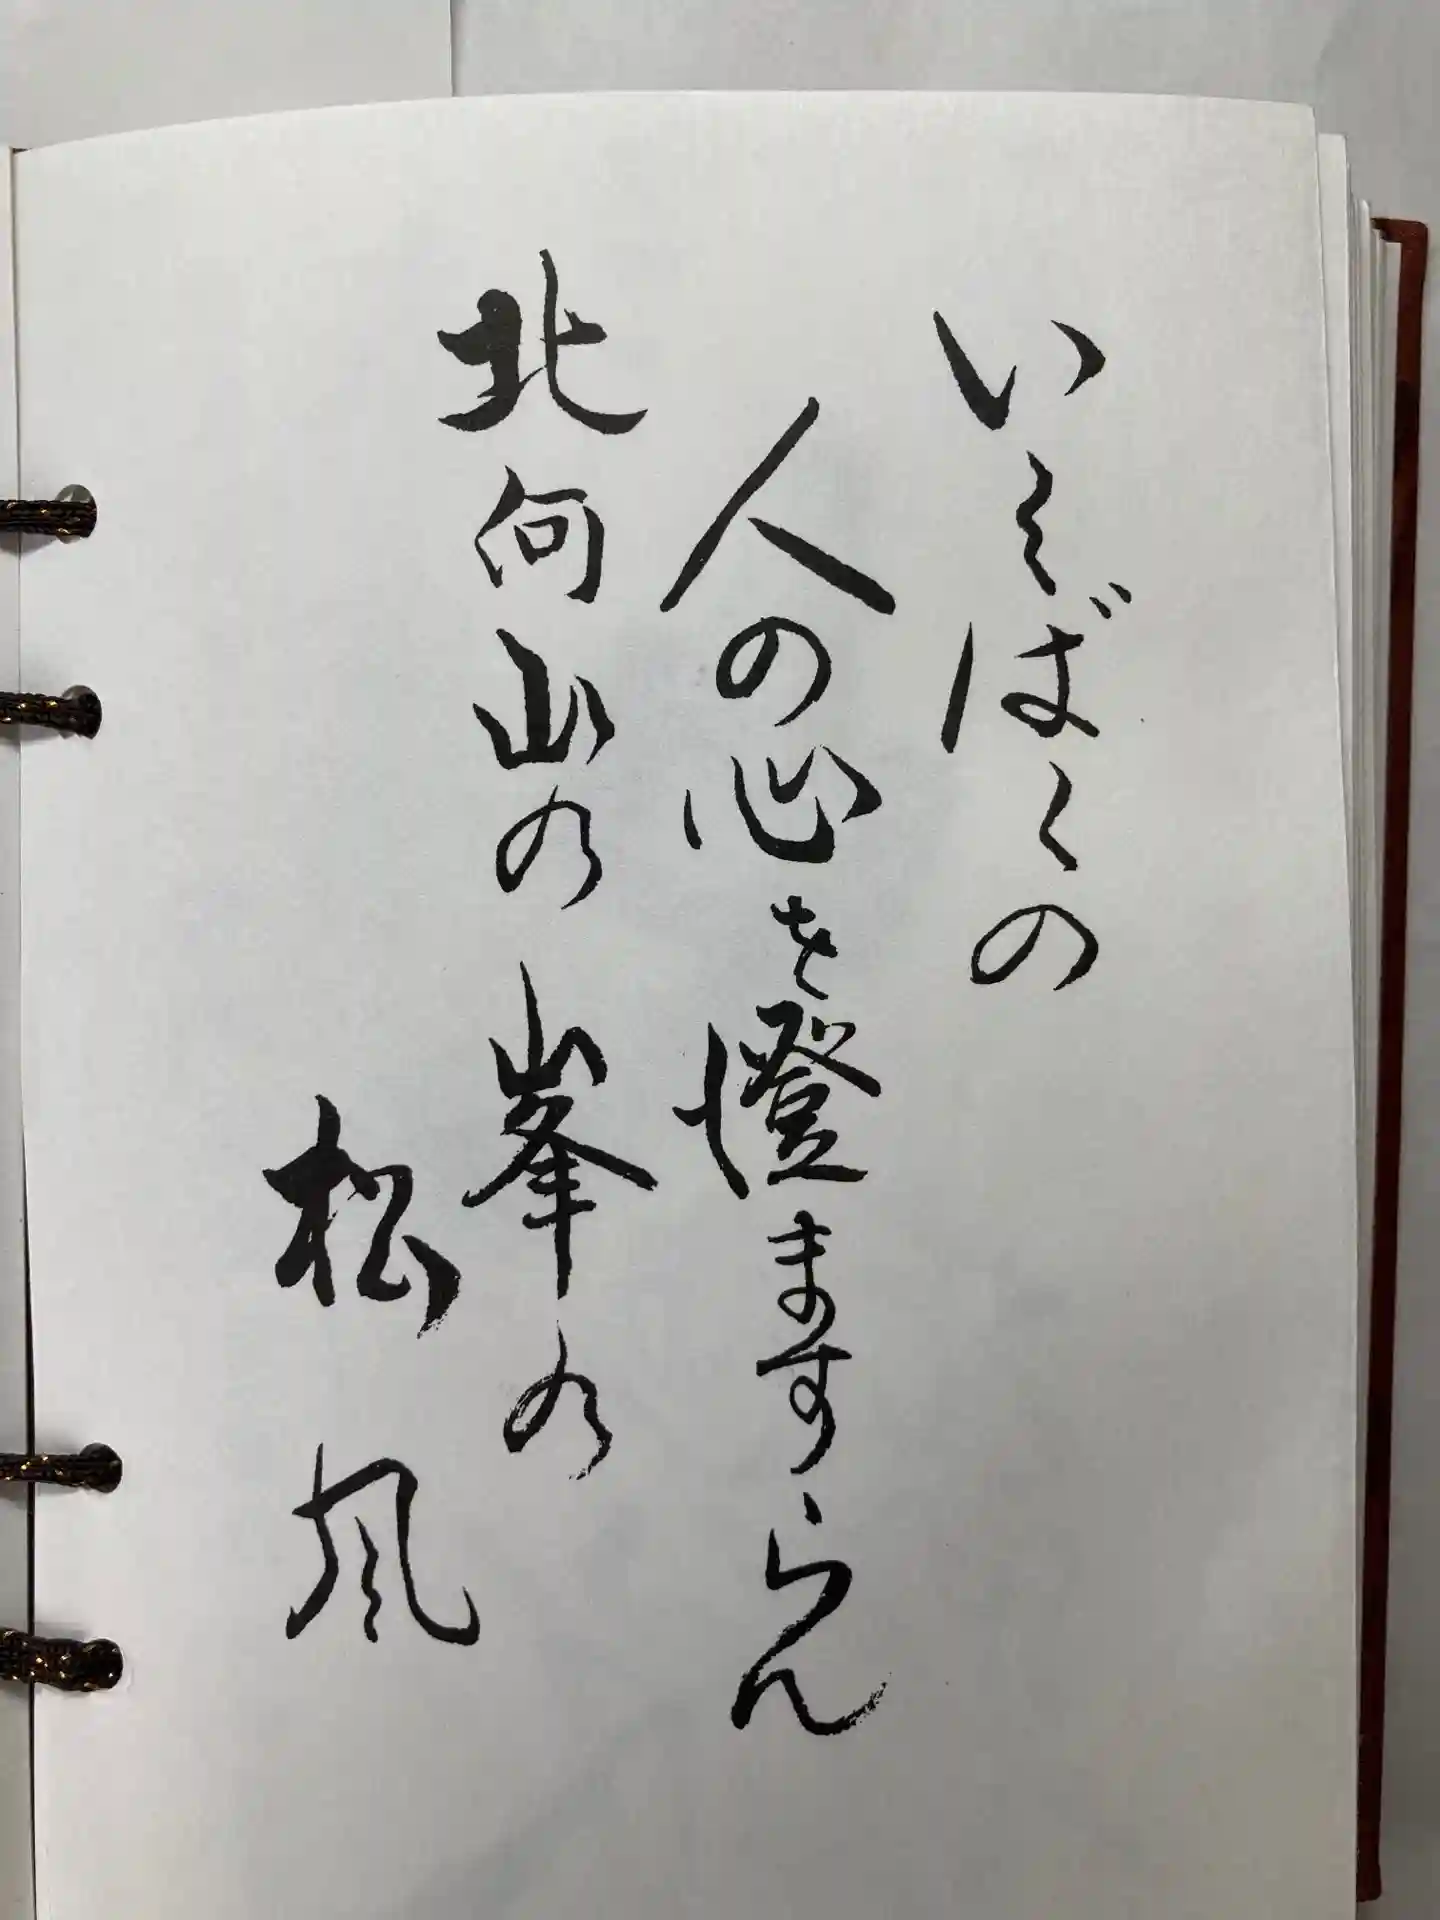 いそばくの
人の心を澄ますらん
北向山の峯の
松風